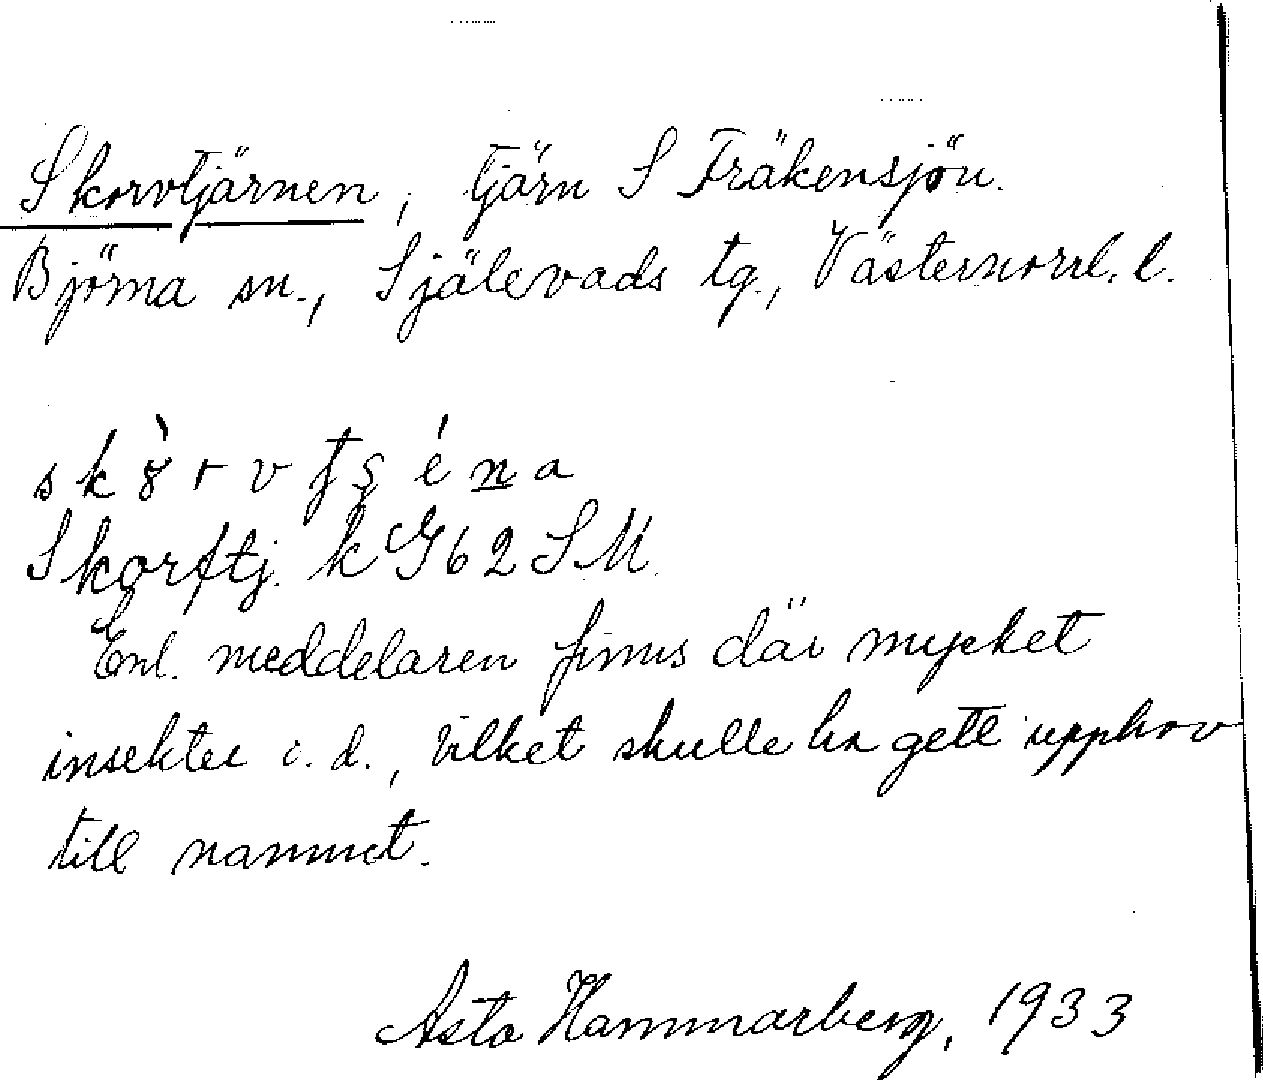 Skorvtjärnen, tjärn S Fräkensjön.
Björna sn., Själevads tg., Västernorrl. l.
Skorftj. k G62SM
Enl. meddelaren finns där mycket
insekter o. d., vilket skulle ha gett upphov
till namnet.
Asta Hammarberg, 1933